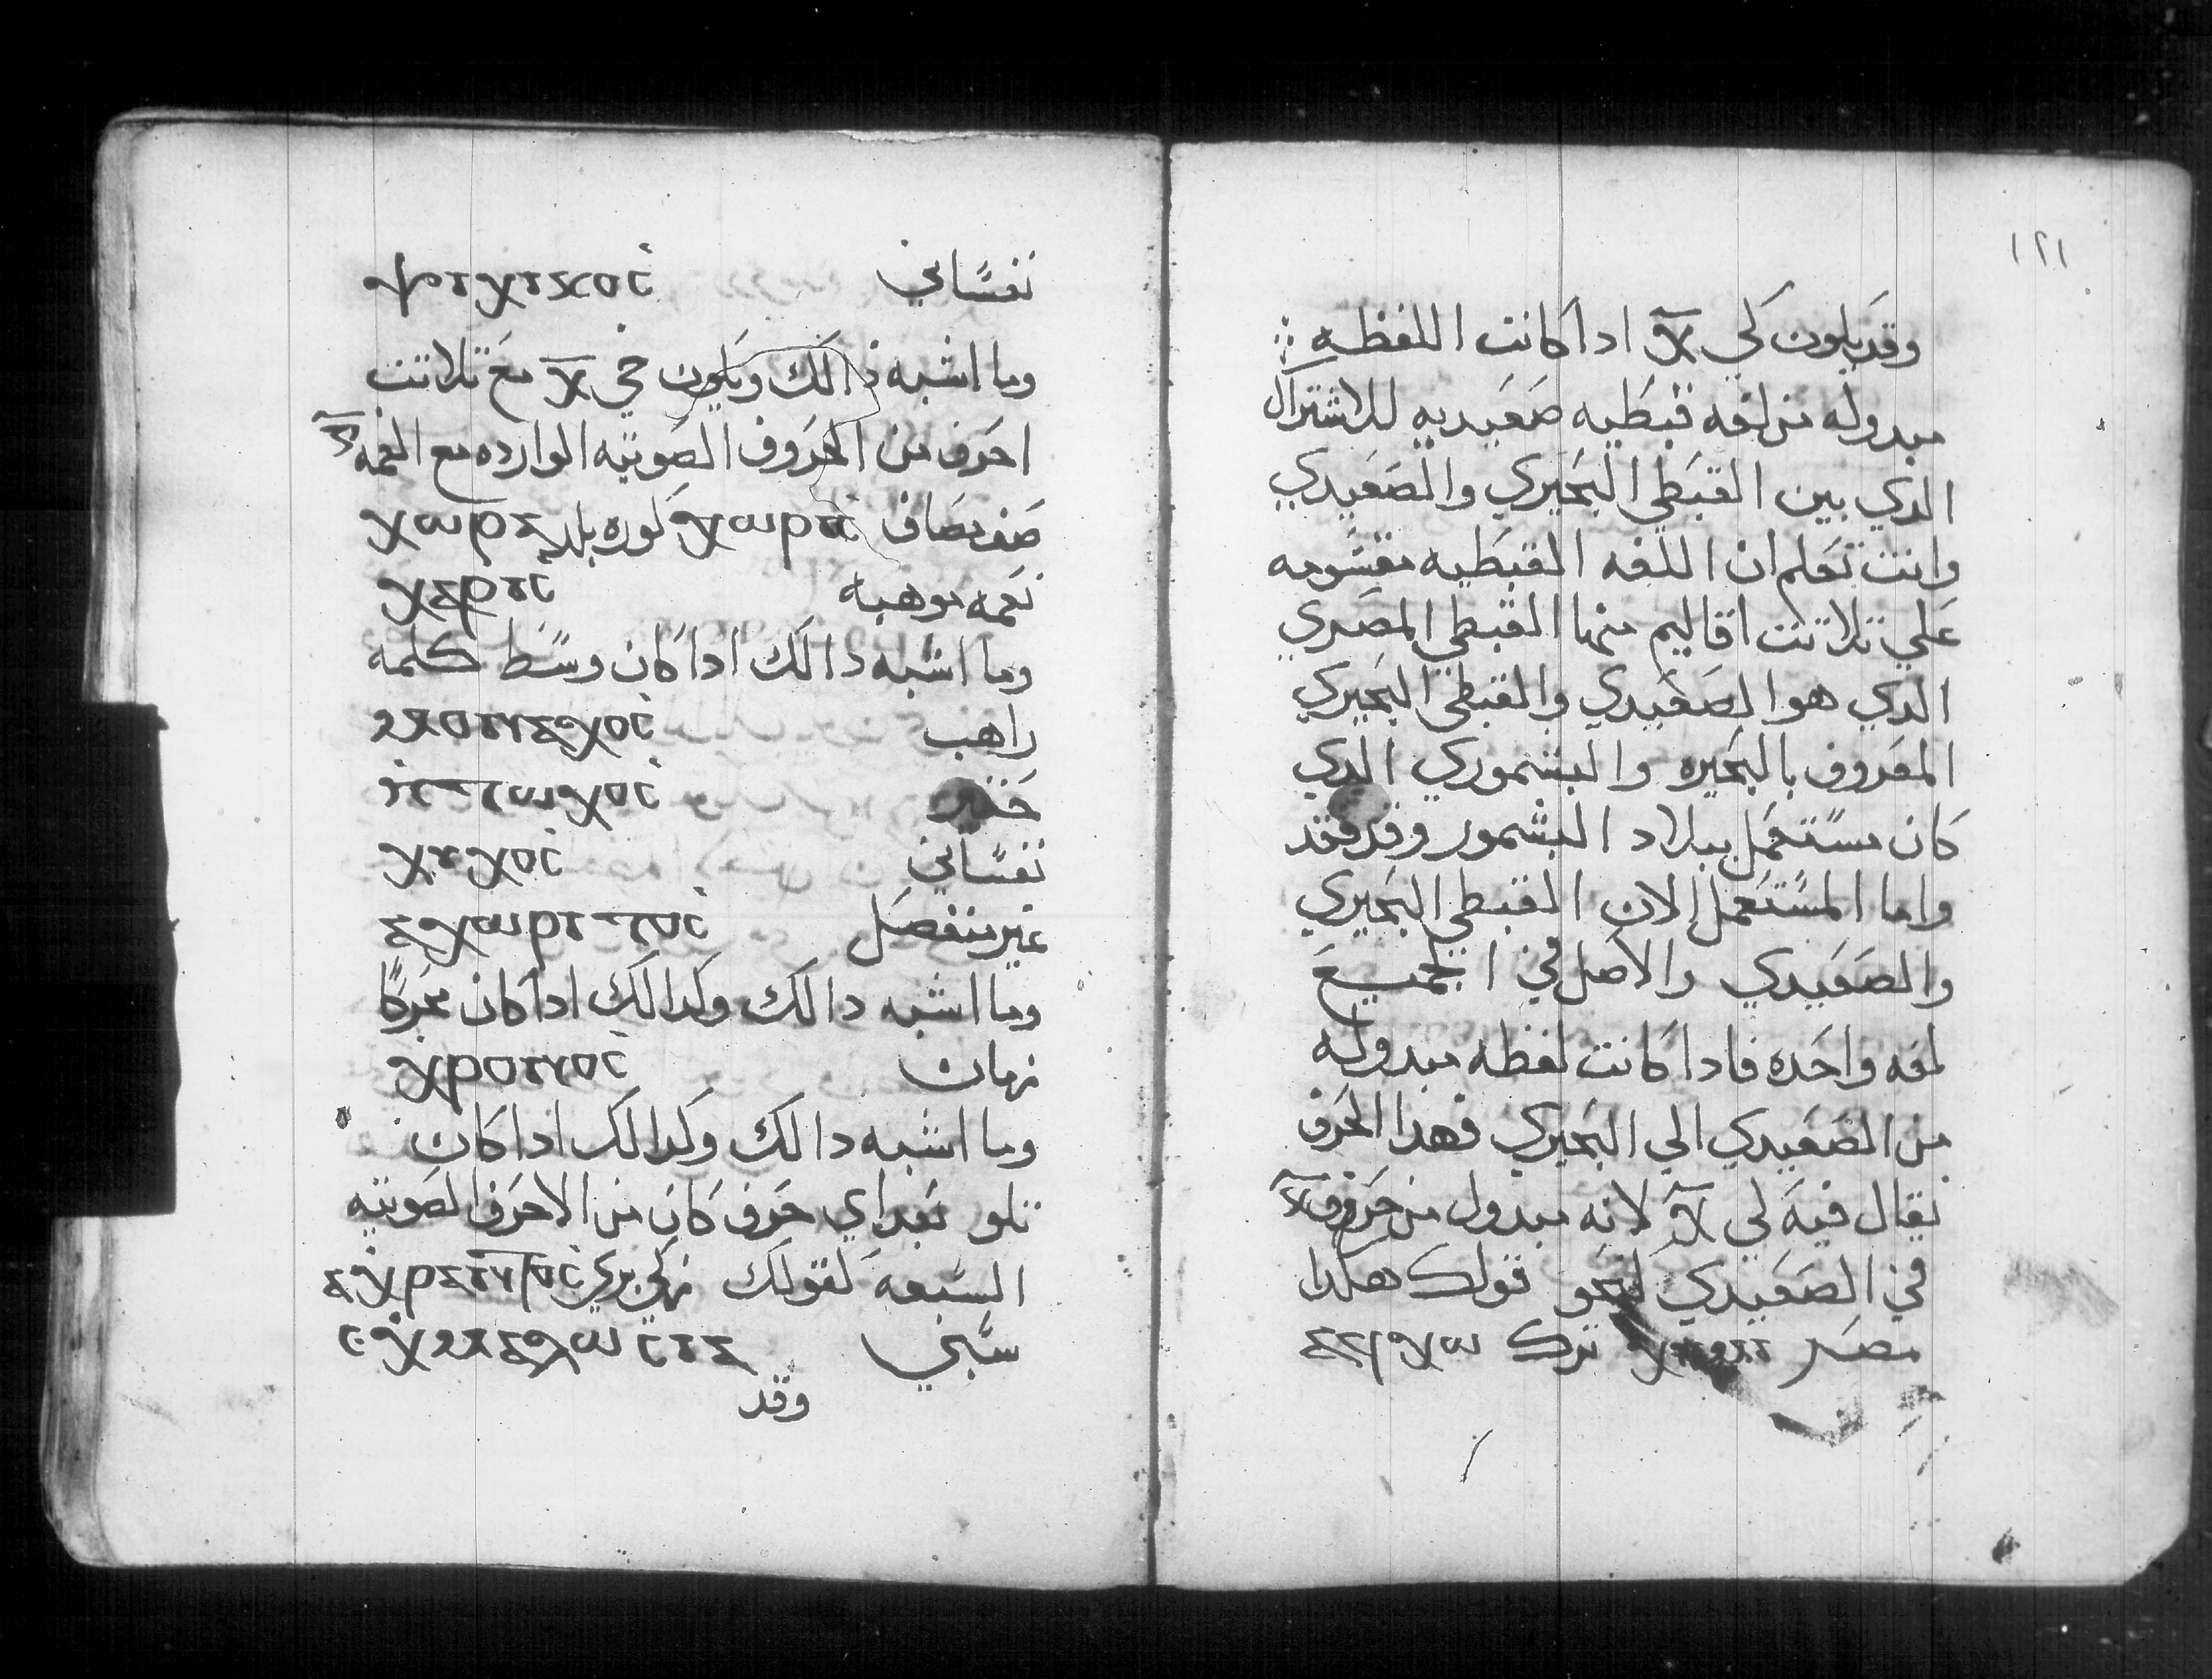 نفساني ⲯⲩⲭⲓⲕⲟⲥ
وما اشبه دالك ويكون خي ⲭ مع تلاتت
احرف من الحروف الصوتيه الوارده مع النغمه
صف مصاف كوره بلد ⲭⲱⲣⲁ
نعمه موهبه ⲭⲁⲣⲓⲥ
وما اشبه دالك ادا كان وسط كلمه
راهب ⲙⲟⲛⲁⲭⲟⲥ
ⲡⲧⲱⲭⲟⲥ
نفساني
غير منفصل ⲁⲭⲱⲣⲓⲥⲧⲟⲥ
وما اشبه دالك وكدالك ادا كان محركا
زمان ⲭⲣⲟⲛⲟⲥ
وما اشبه دالك وكدالك ادا كان
تلو بعد اي حرف كان من الاحرف الصوتيه
السبعه كقولك
سبي
وقد
١٢١
وقد يكون كي ⲭ ادا كانت اللفظه
مبدوله من لغه قبطيه صعيديه للاشتراك
الدي بين القبطي البحيري والصعيدي
وانت تعلم ان اللغه القبطيه مقسومه
علي تلاتت اقاليم منها القبطي المصري
الدي هو الصعيدي والقبطي البحيري
المعروف بالبحيره والبشموري الدي
كان مستعمل ببلاد البشمور وقد فقد
واما المستعمل الان القبطي البحيري
والصعيدي والاصل في الجميع
لغه واحده فادا كانت لفظه مبدوله
من الصعيدي الي البحيري فهدا الحرف
يقال فيه كي ⲭ لانه مبدول من حروف ⲕ
في الصعيدي كنحو قولك هكدا
مصر ترك